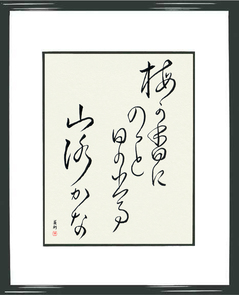 梅か香に
のつと日の出る
山路かな